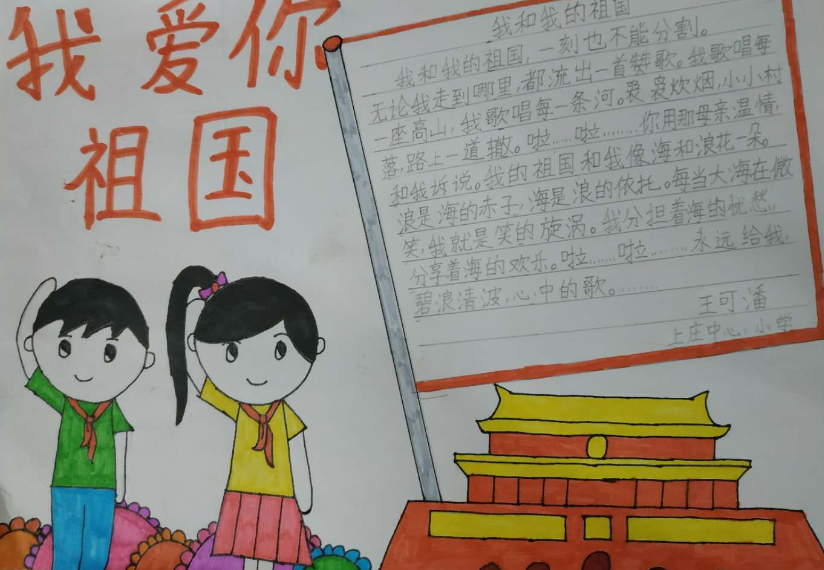 我爱你
祖国
我和我的祖国
我和我的祖国,一刻也不能分割。
无论我走到哪里,都流出一首赞歌。我歌唱每
一座高山,我歌唱每一条河。袅袅炊烟,小小村
落,路上一道辙。啦……啦………你用那母亲温情,
和我诉说。我的祖国和我像海和浪花一朵。
浪是海的赤子,海是浪的依托。每当大海在微
笑,我就是笑的旋涡。我分担着海的忧愁,
分享着海的欢乐。啦……啦………永远给我,
碧浪清波,心中的歌。………
王可潘
上庄中心小学